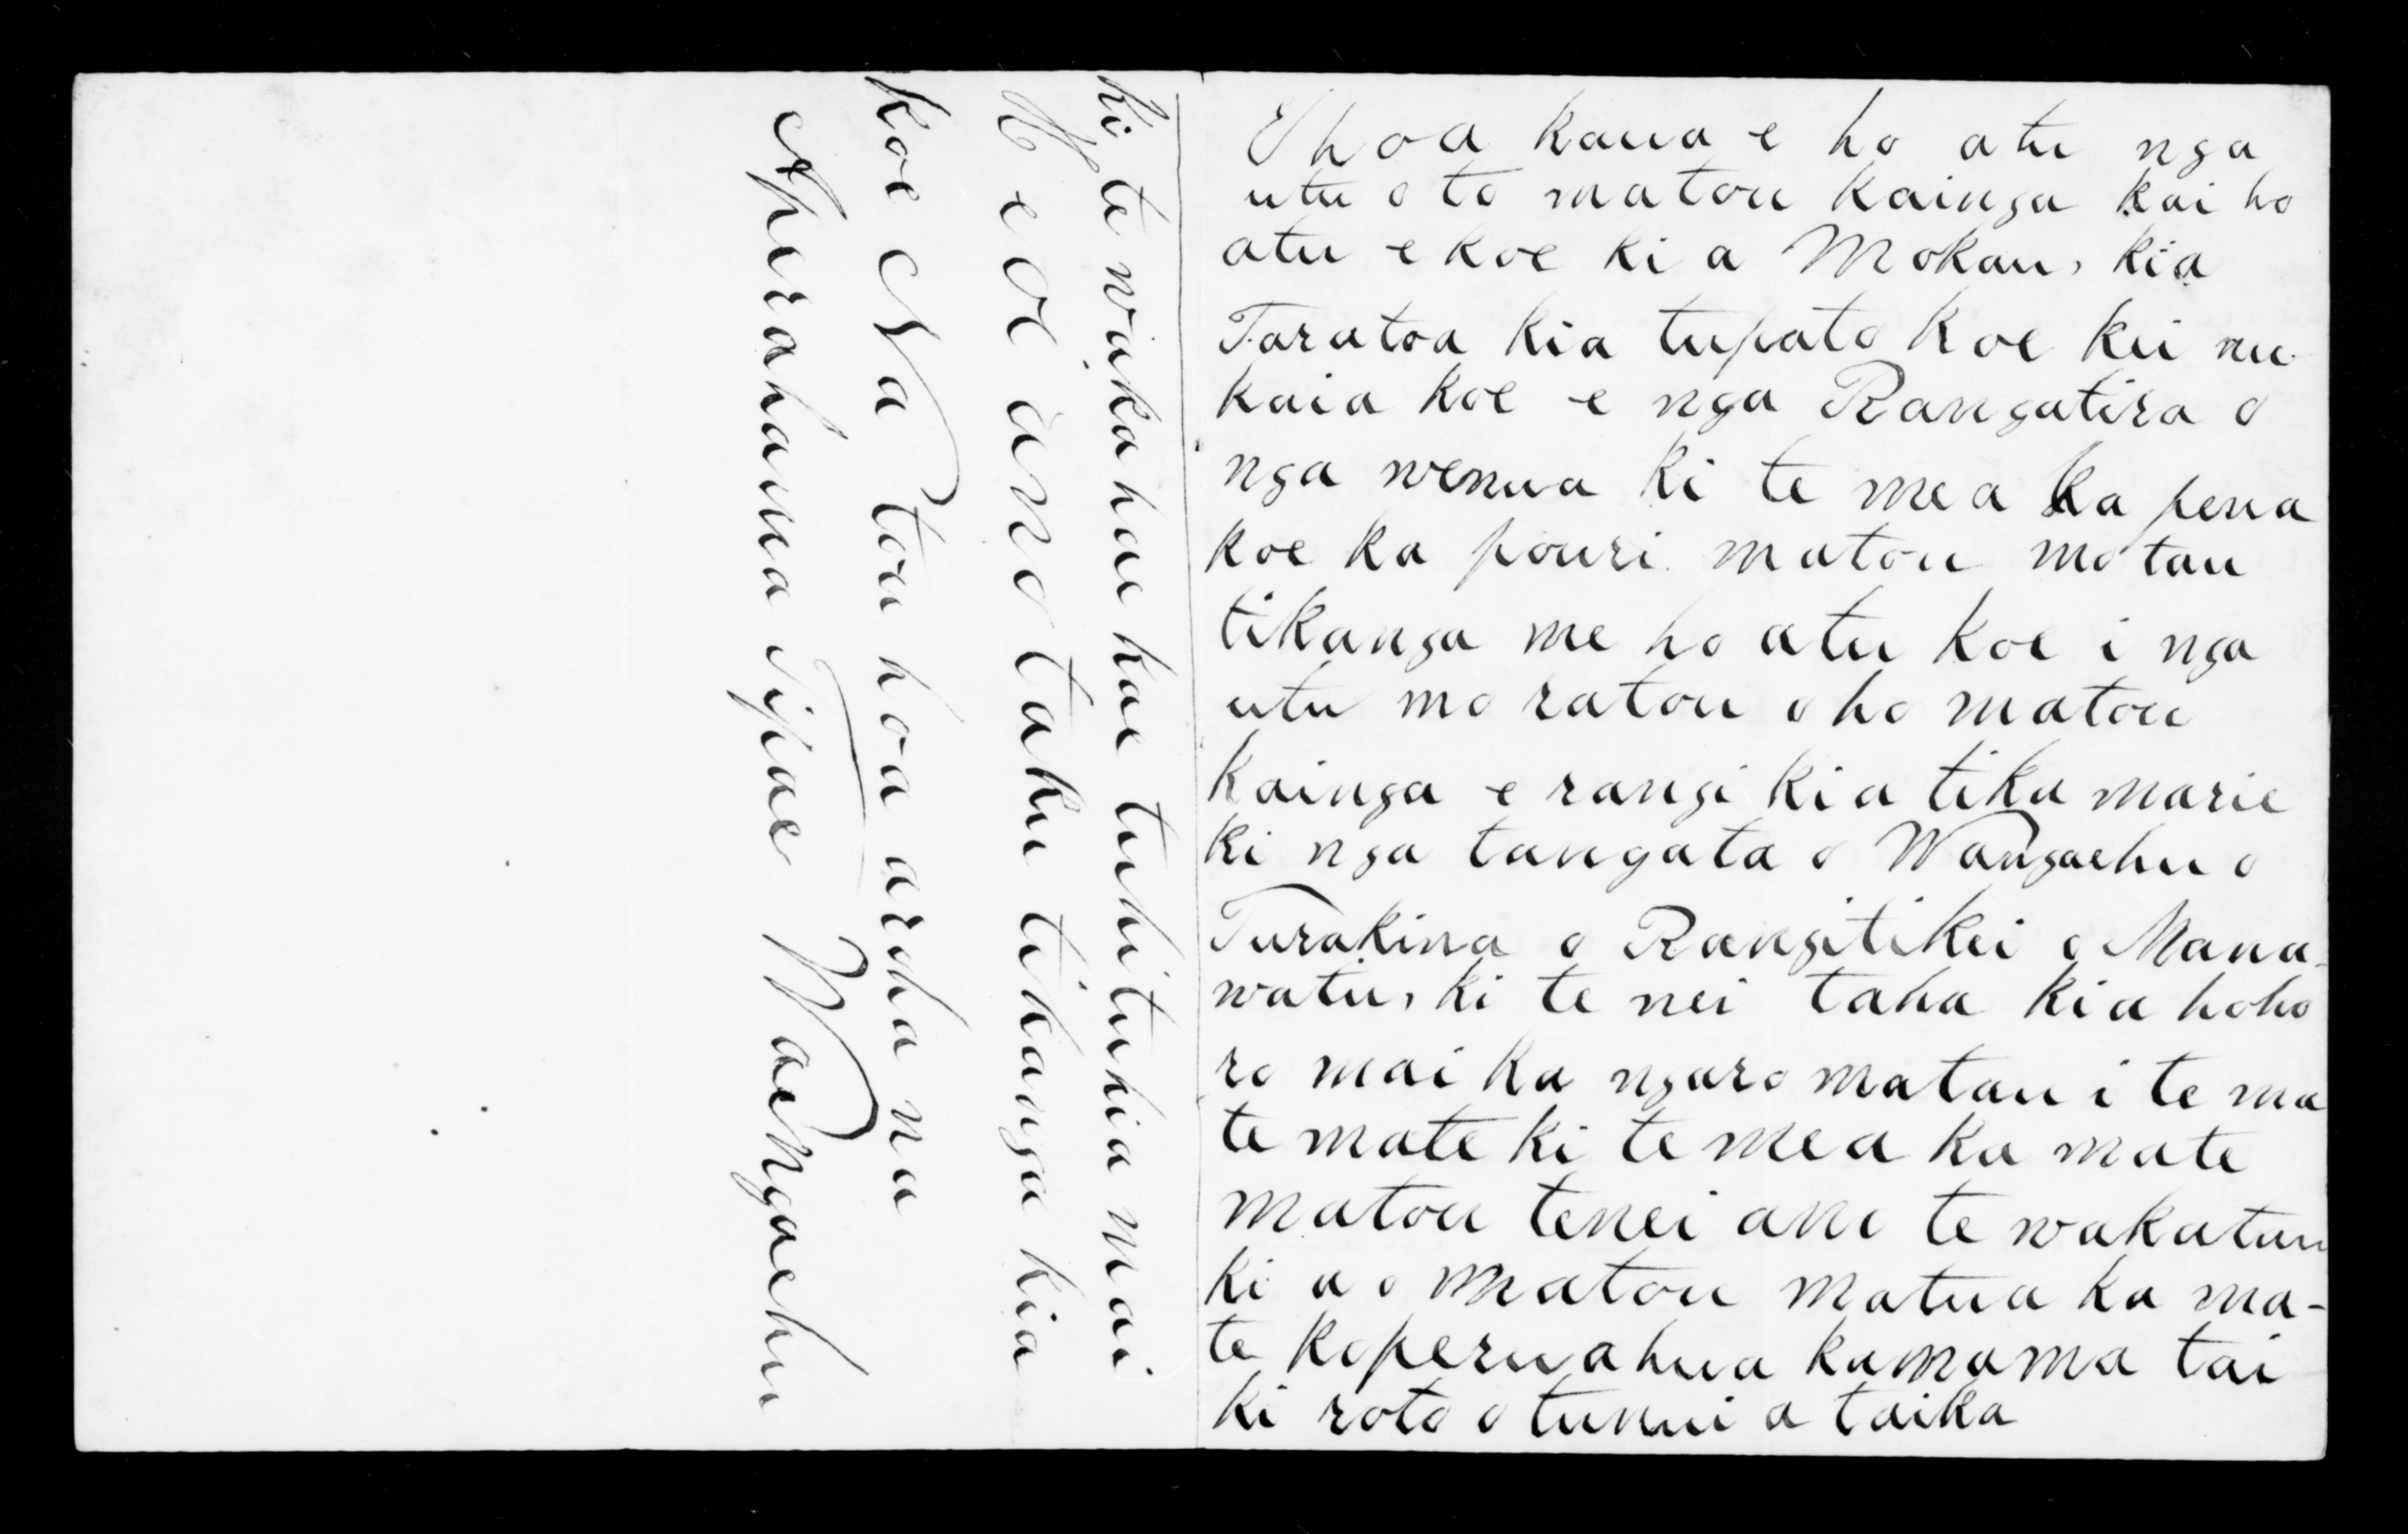 E hoa kaua e ho atu nga
utu o to matou kainga kai ho
atu e koe ki a Mokau, kia
Taratoa kia tupato koe kei nu-
kaia koe e nga Rangatira o
nga wenua ki te mea ka pena
koe ka pouri matou mo tau
tikanga me ho atu koe i nga
utu mo ratou o ho matou
kainga e rangi kia tika marie
ki nga tangata o Wangaehu o
Turakina o Rangitikei o Mana-
watu, ki te nei taha kia hoho
ro mai ka ngaro matau i te ma
te mate ki te mea ka mate
matou tenei ano te wakatau
ki a o matou matua ka ma-
te koperuahua kamama tai
ki roto o tunui a taika
ki te wakahae kae tuhituhia mai
Heoi ano taku tikanga kia
koe Na tou hoa aroha na
Aperahama Tipae Wangaehu